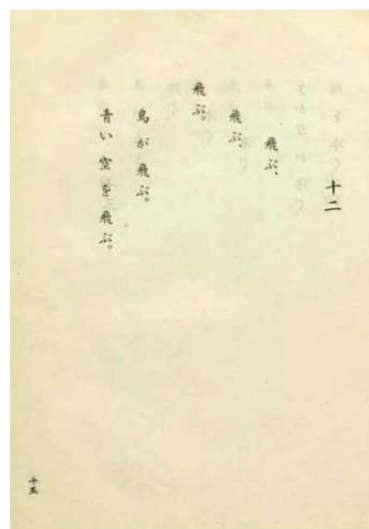 十二
飛ぶ、
飛ぶ、
飛ぶ。
鳥が飛ぶ。
青い空を飛ぶ。
十五